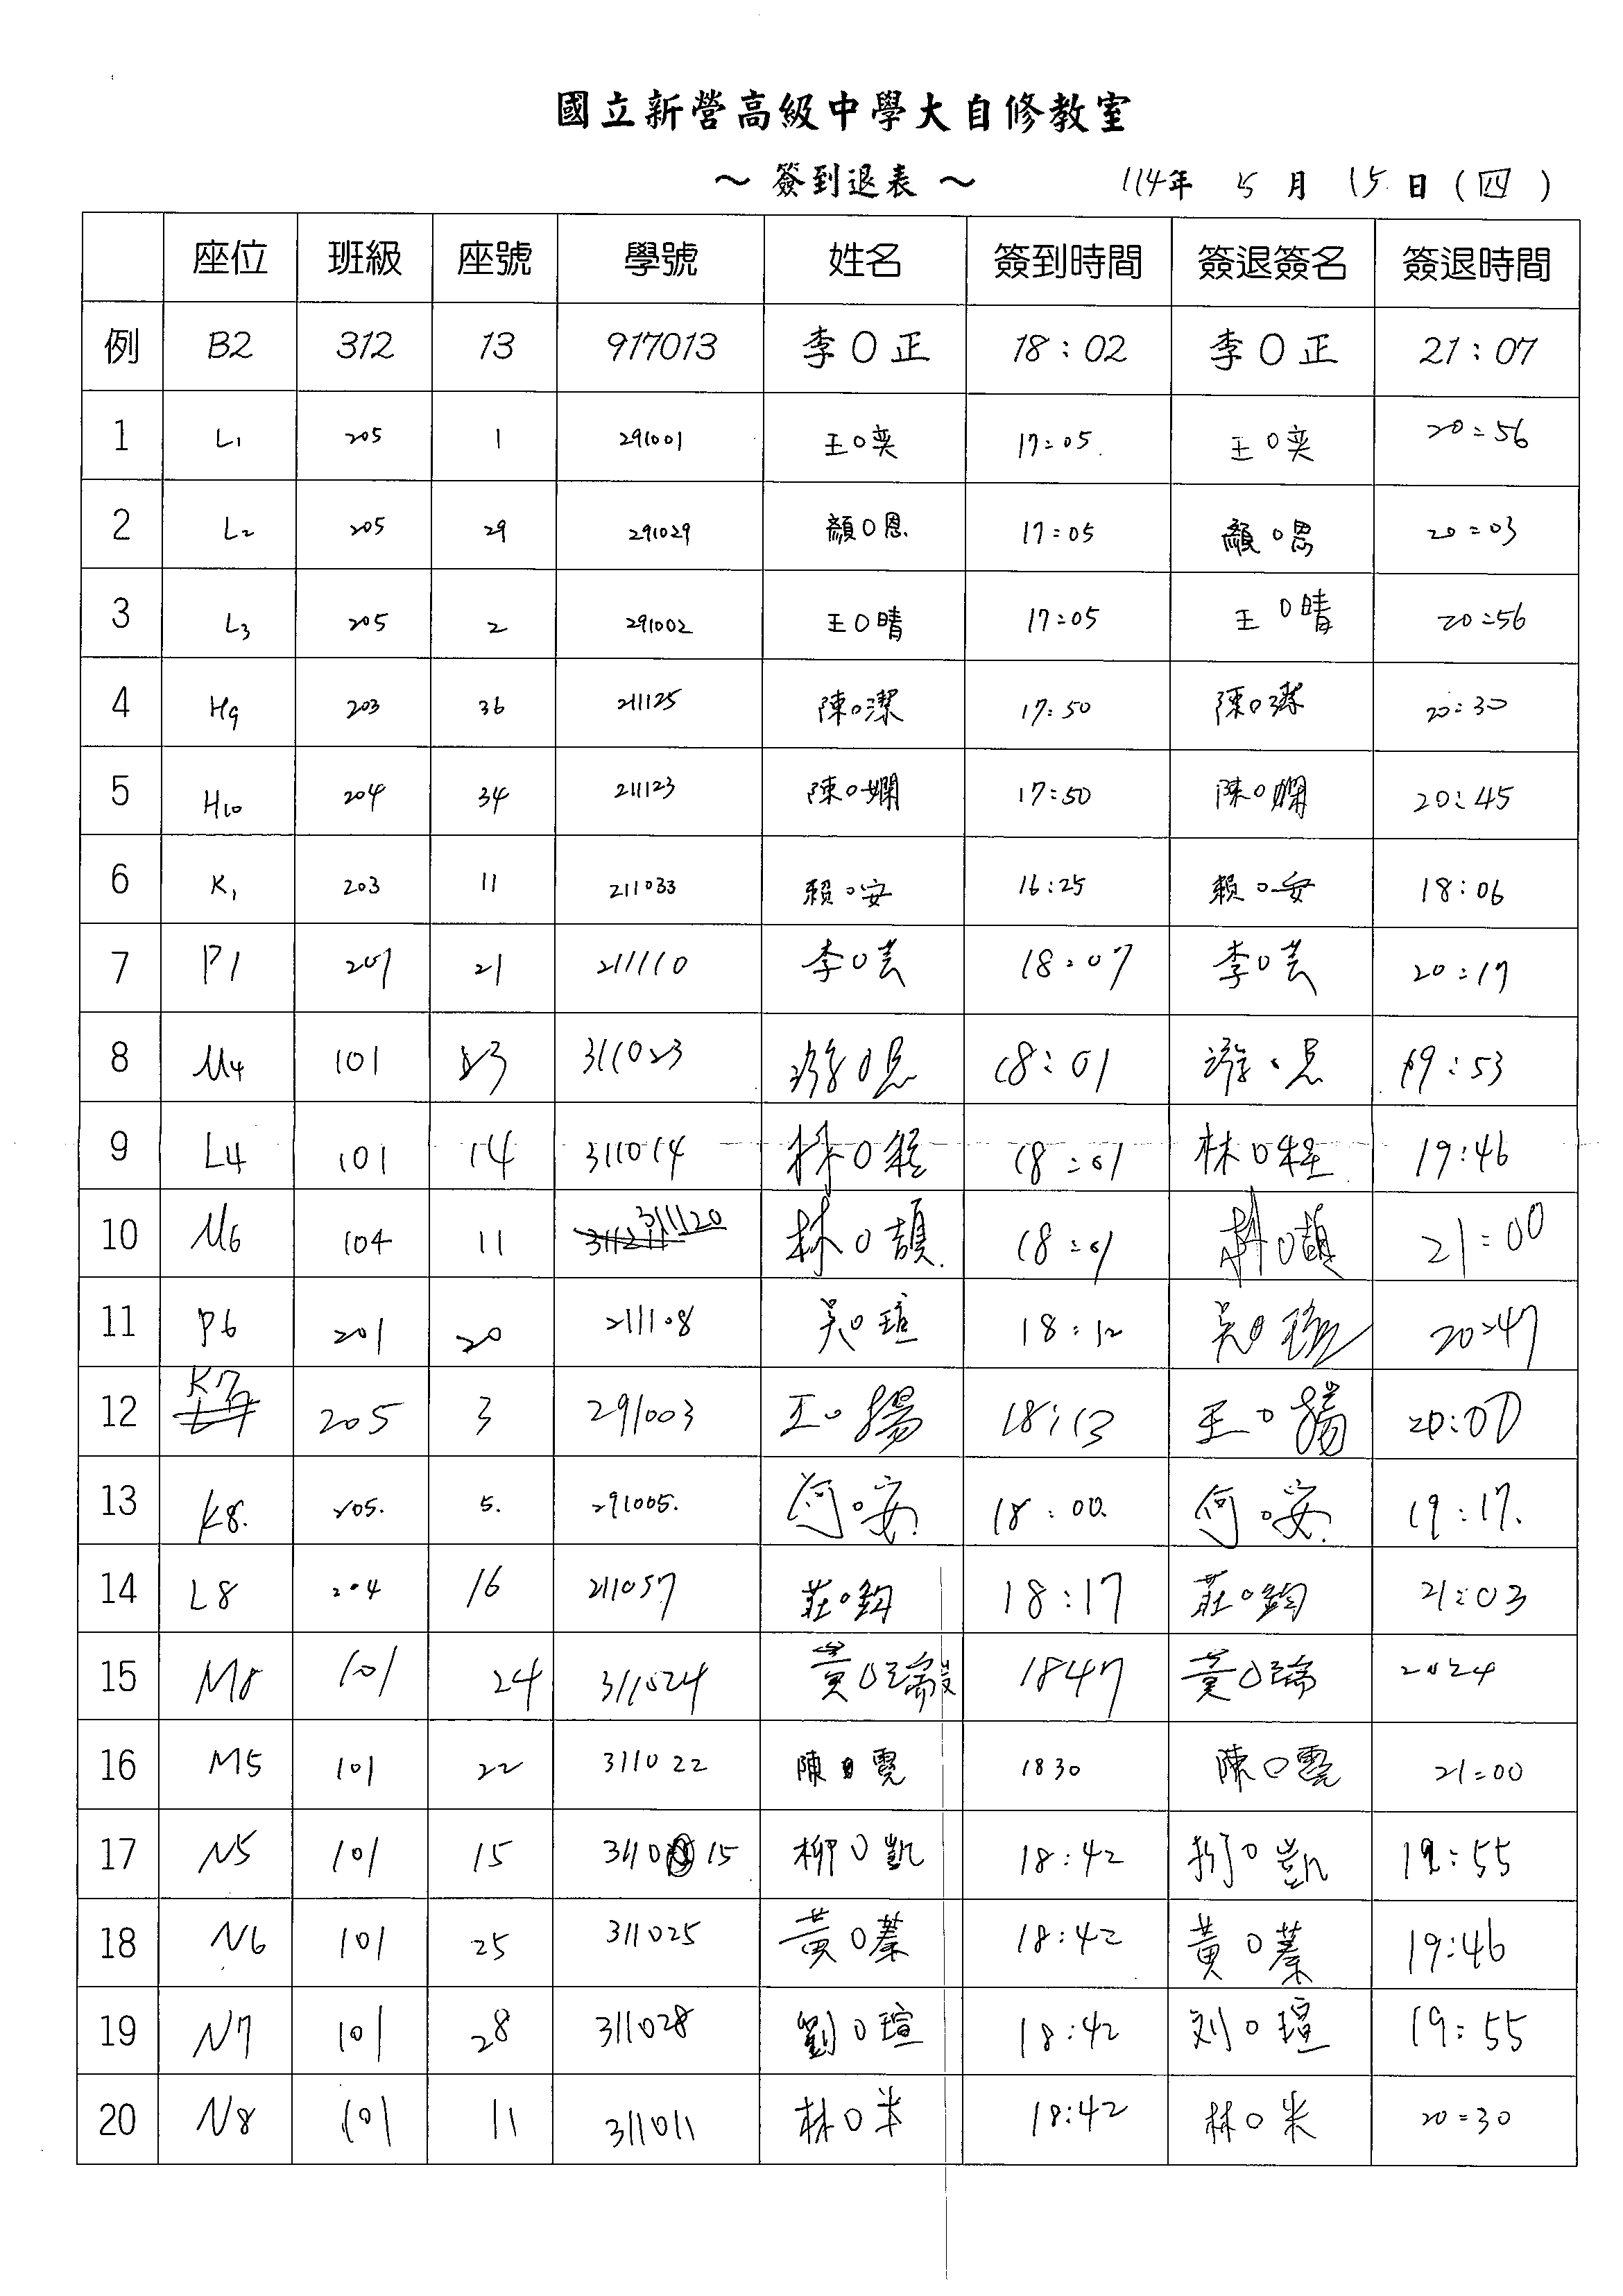 國立新營高級中學大自修教室
～ 簽到退表 ～ 114年 5 月 15 日 (四)
座位 班級 座號 學號 姓名 簽到時間 簽退簽名 簽退時間
例 B2 312 13 917013 李O正 18:02 李O正 21:07
1 L1 205 1 291001 王O奕 17:05 王O奕 20:56
2 L2 205 29 291029 顏O恩 17:05 顏O恩 20:03
3 L3 205 2 291002 王O晴 17:05 王O晴 20:56
4 H9 203 36 211125 陳O潔 17:50 陳O潔 20:30
5 H10 204 34 211123 陳O嫻 17:50 陳O嫻 20:45
6 K1 203 11 211033 賴O安 16:25 賴O安 18:06
7 P1 201 21 211110 李O芸 18:07 李O芸 20:17
8 M4 101 23 311023 游O恩 18:01 游O恩 19:53
9 L4 101 14 311014 林O程 18:01 林O程 19:46
10 M6 104 11 311120 林O頡 18:01 林O頡 21:00
11 P6 201 20 211108 吳O瑄 18:12 吳O 20:47
12 K7 205 3 291003 王O揚 18:13 王O揚 20:00
13 K8. 205. 5. 291005. 何O安. 18:00. 何O安. 19:17.
14 L8 204 16 211057 莊O鈞 18:17 莊O鈞 21:03
15 M8 101 24 311024 黃O瑜 1847 黃O瑜 2024
16 M5 101 22 311022 陳O霓 1830 陳O霓 21:00
17 N5 101 15 311015 柳O凱 18:42 柳O凱 19:55
18 N6 101 25 311025 黃O蓁 18:42 黃O蓁 19:46
19 N7 101 28 311028 劉O瑄 18:42 刘O瑄 19:55
20 N8 101 11 311011 林O米 18:42 林O米 20:30